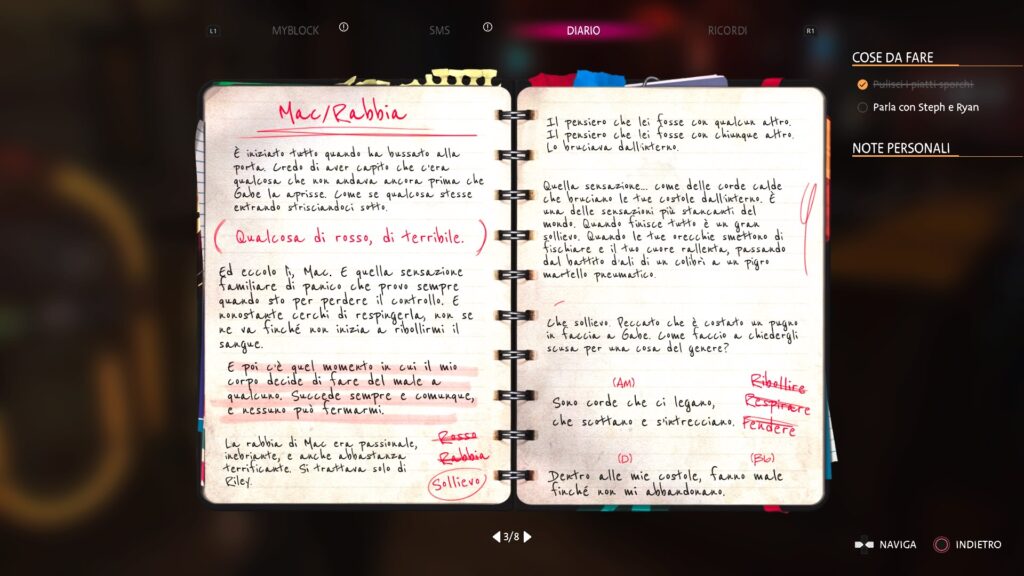 L1
MYBLOCK
SMS
DIARIO
RICORDI
R1
Mac/Rabbia
È iniziato tutto quando ha bussato alla
porta. Credo di aver capito che c'era
qualcosa che non andava ancora prima che
Gabe la aprisse. Come se qualcosa stesse
entrando strisciandoci sotto.
( Qualcosa di rosso, di terribile. )
Ed eccolo lì, Mac. E quella sensazione
familiare di panico che provo sempre
quando sto per perdere il controllo. E
nonostante cerchi di respingerla, non se
ne va finché non inizia a ribollirmi il
sangue.
E poi c'è quel momento in cui il mio
corpo decide di fare del male a
qualcuno. Succede sempre e comunque,
e nessuno può fermarmi.
La rabbia di Mac era passionale,
inebriante, e anche abbastanza
terrificante. Si trattava solo di
Riley.
Rosso
Rabbia
Sollievo
Il pensiero che lei fosse con qualcun altro.
Il pensiero che lei fosse con chiunque altro.
Lo bruciava dall'interno.
Quella sensazione... come delle corde calde
che bruciano le tue costole dall'interno. È
una delle sensazioni più stancanti del
mondo. Quando finisce tutto è un gran
sollievo. Quando le tue orecchie smettono di
fischiare e il tuo cuore rallenta, passando
dal battito d'ali di un colibrì a un pigro
martello pneumatico.
Che sollievo. Peccato che è costato un pugno
in faccia a Gabe. Come faccio a chiedergli
scusa per una cosa del genere?
(AM)
Sono corde che ci legano,
che scottano e s'intrecciano.
Ribollire
Respirare
Fendere
(D) (Bb)
Dentro alle mie costole, fanno male
finché non mi abbandonano.
3/8
COSE DA FARE
Pulisci i piatti sporchi
Parla con Steph e Ryan
NOTE PERSONALI
NAVIGA
INDIETRO